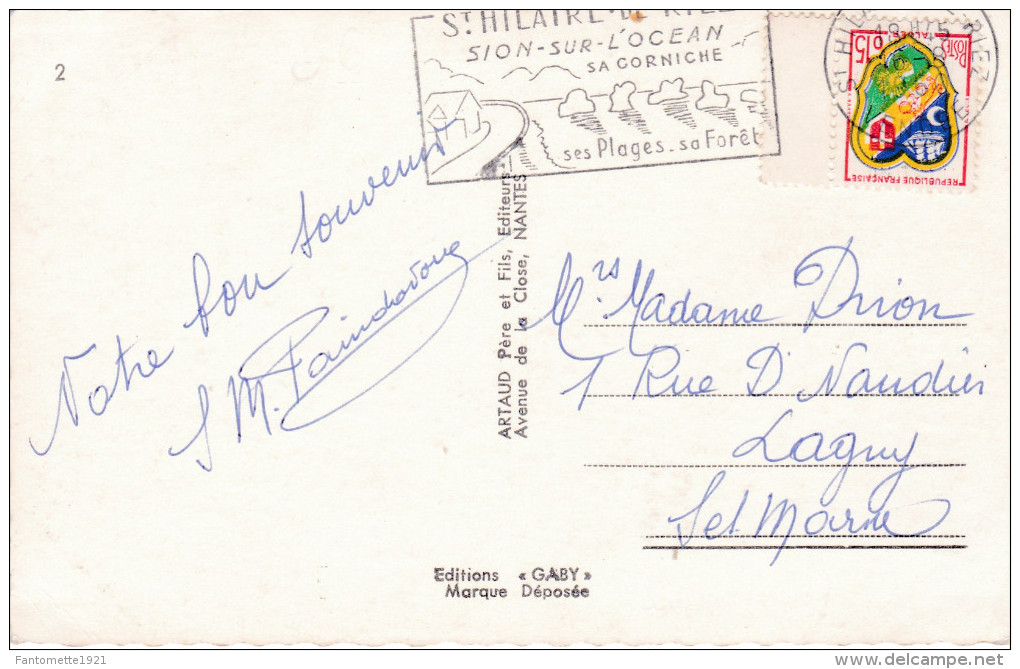 St HILAIRE-DE-RIEZ
SION-SUR-L'OCEAN
SA CORNICHE
ses Plages - sa Forêt
POSTES
15
REPUBLIQUE FRANÇAISE
18 H45
2
Notre bon souvenir
ARTAUD Père et Fils, Editeurs
Avenue de la Close, NANTES
Mrs Madame Drion
1 Rue D. Naudier
Lagny
Set Marne
Editions « GABY »
Marque Déposée
Fantomette1921
www.delcampe.net